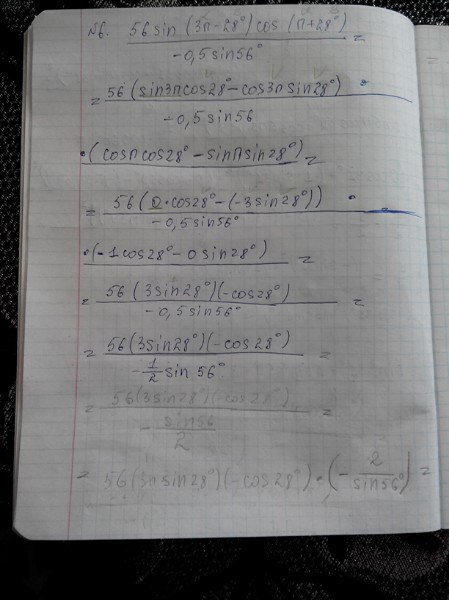 №6. 56 sin (3π-28°) cos (π+28°) =
-0,5 sin56°
= 56 (sin3πcos28°-cos3π sin28°) •
-0,5 sin56
•(cosπcos28° - sinπsin28°) =
= 56(0•cos28°-(-3sin28°)) •
-0,5 sin56°
•(-1cos28°-0sin28°) =
= 56 (3sin28°)(-cos28°) =
-0,5 sin56°
= 56(3sin28°)(-cos28°) =
-1/2 sin 56°
= 56(3sin28°)(-cos28°) =
- sin56/2
= 56(3π sin28°)(-cos28°) • (- 2/sin56°) =